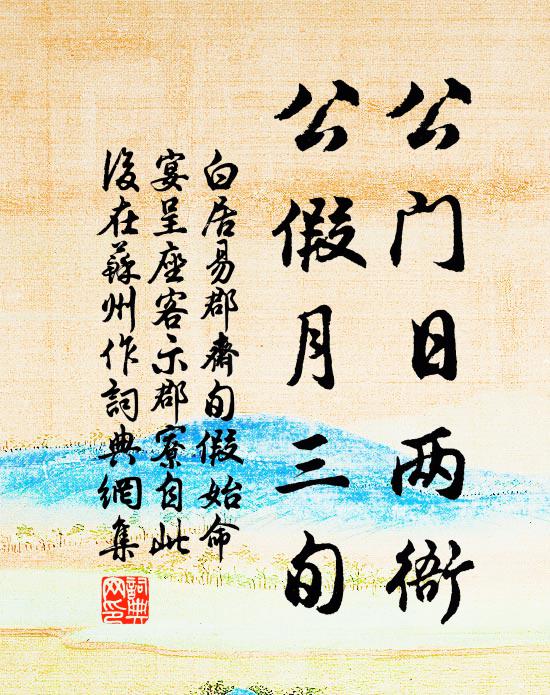 公门日两衙
公假月三旬
白居易郡斋旬假始命
宴呈座客示郡寮自此
后在蘇州作詞典網集
詞典網印